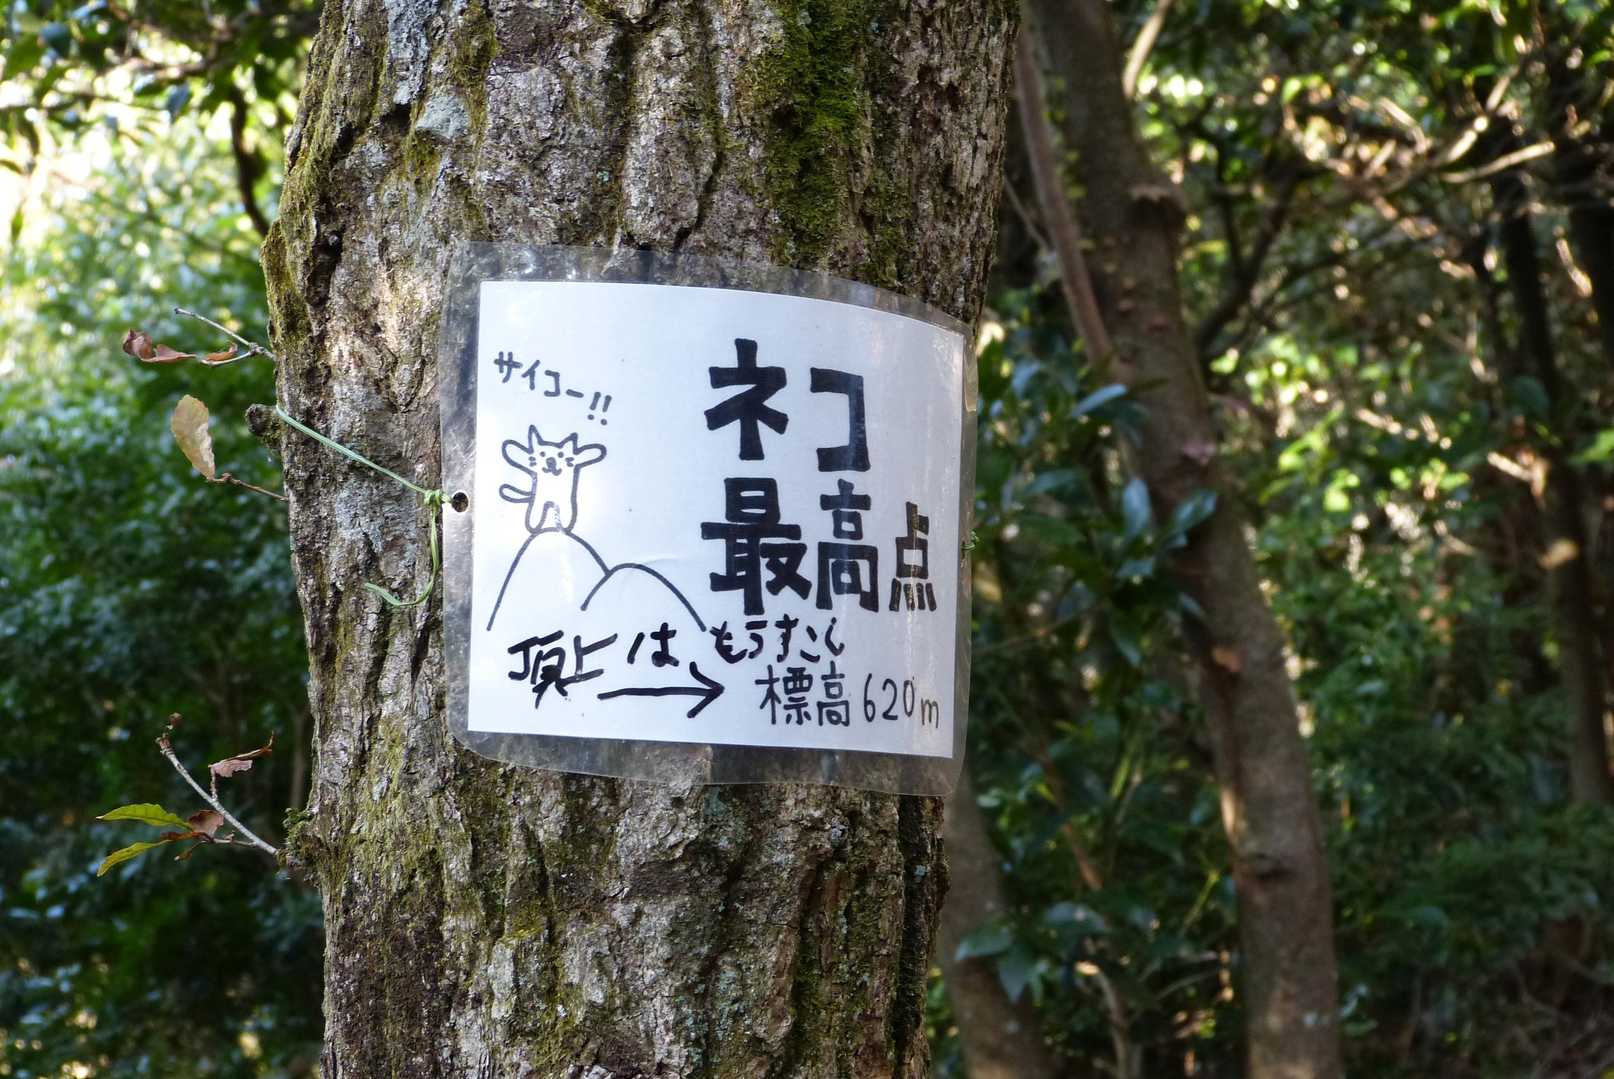 サイコー!!
ネコ
最高点
頂上は
もうすこし
→
標高620m